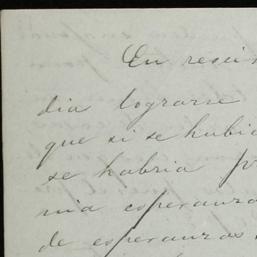 En resu
dia lograrse
que si se hubie
se habria
mia esperanza
de esperanzas